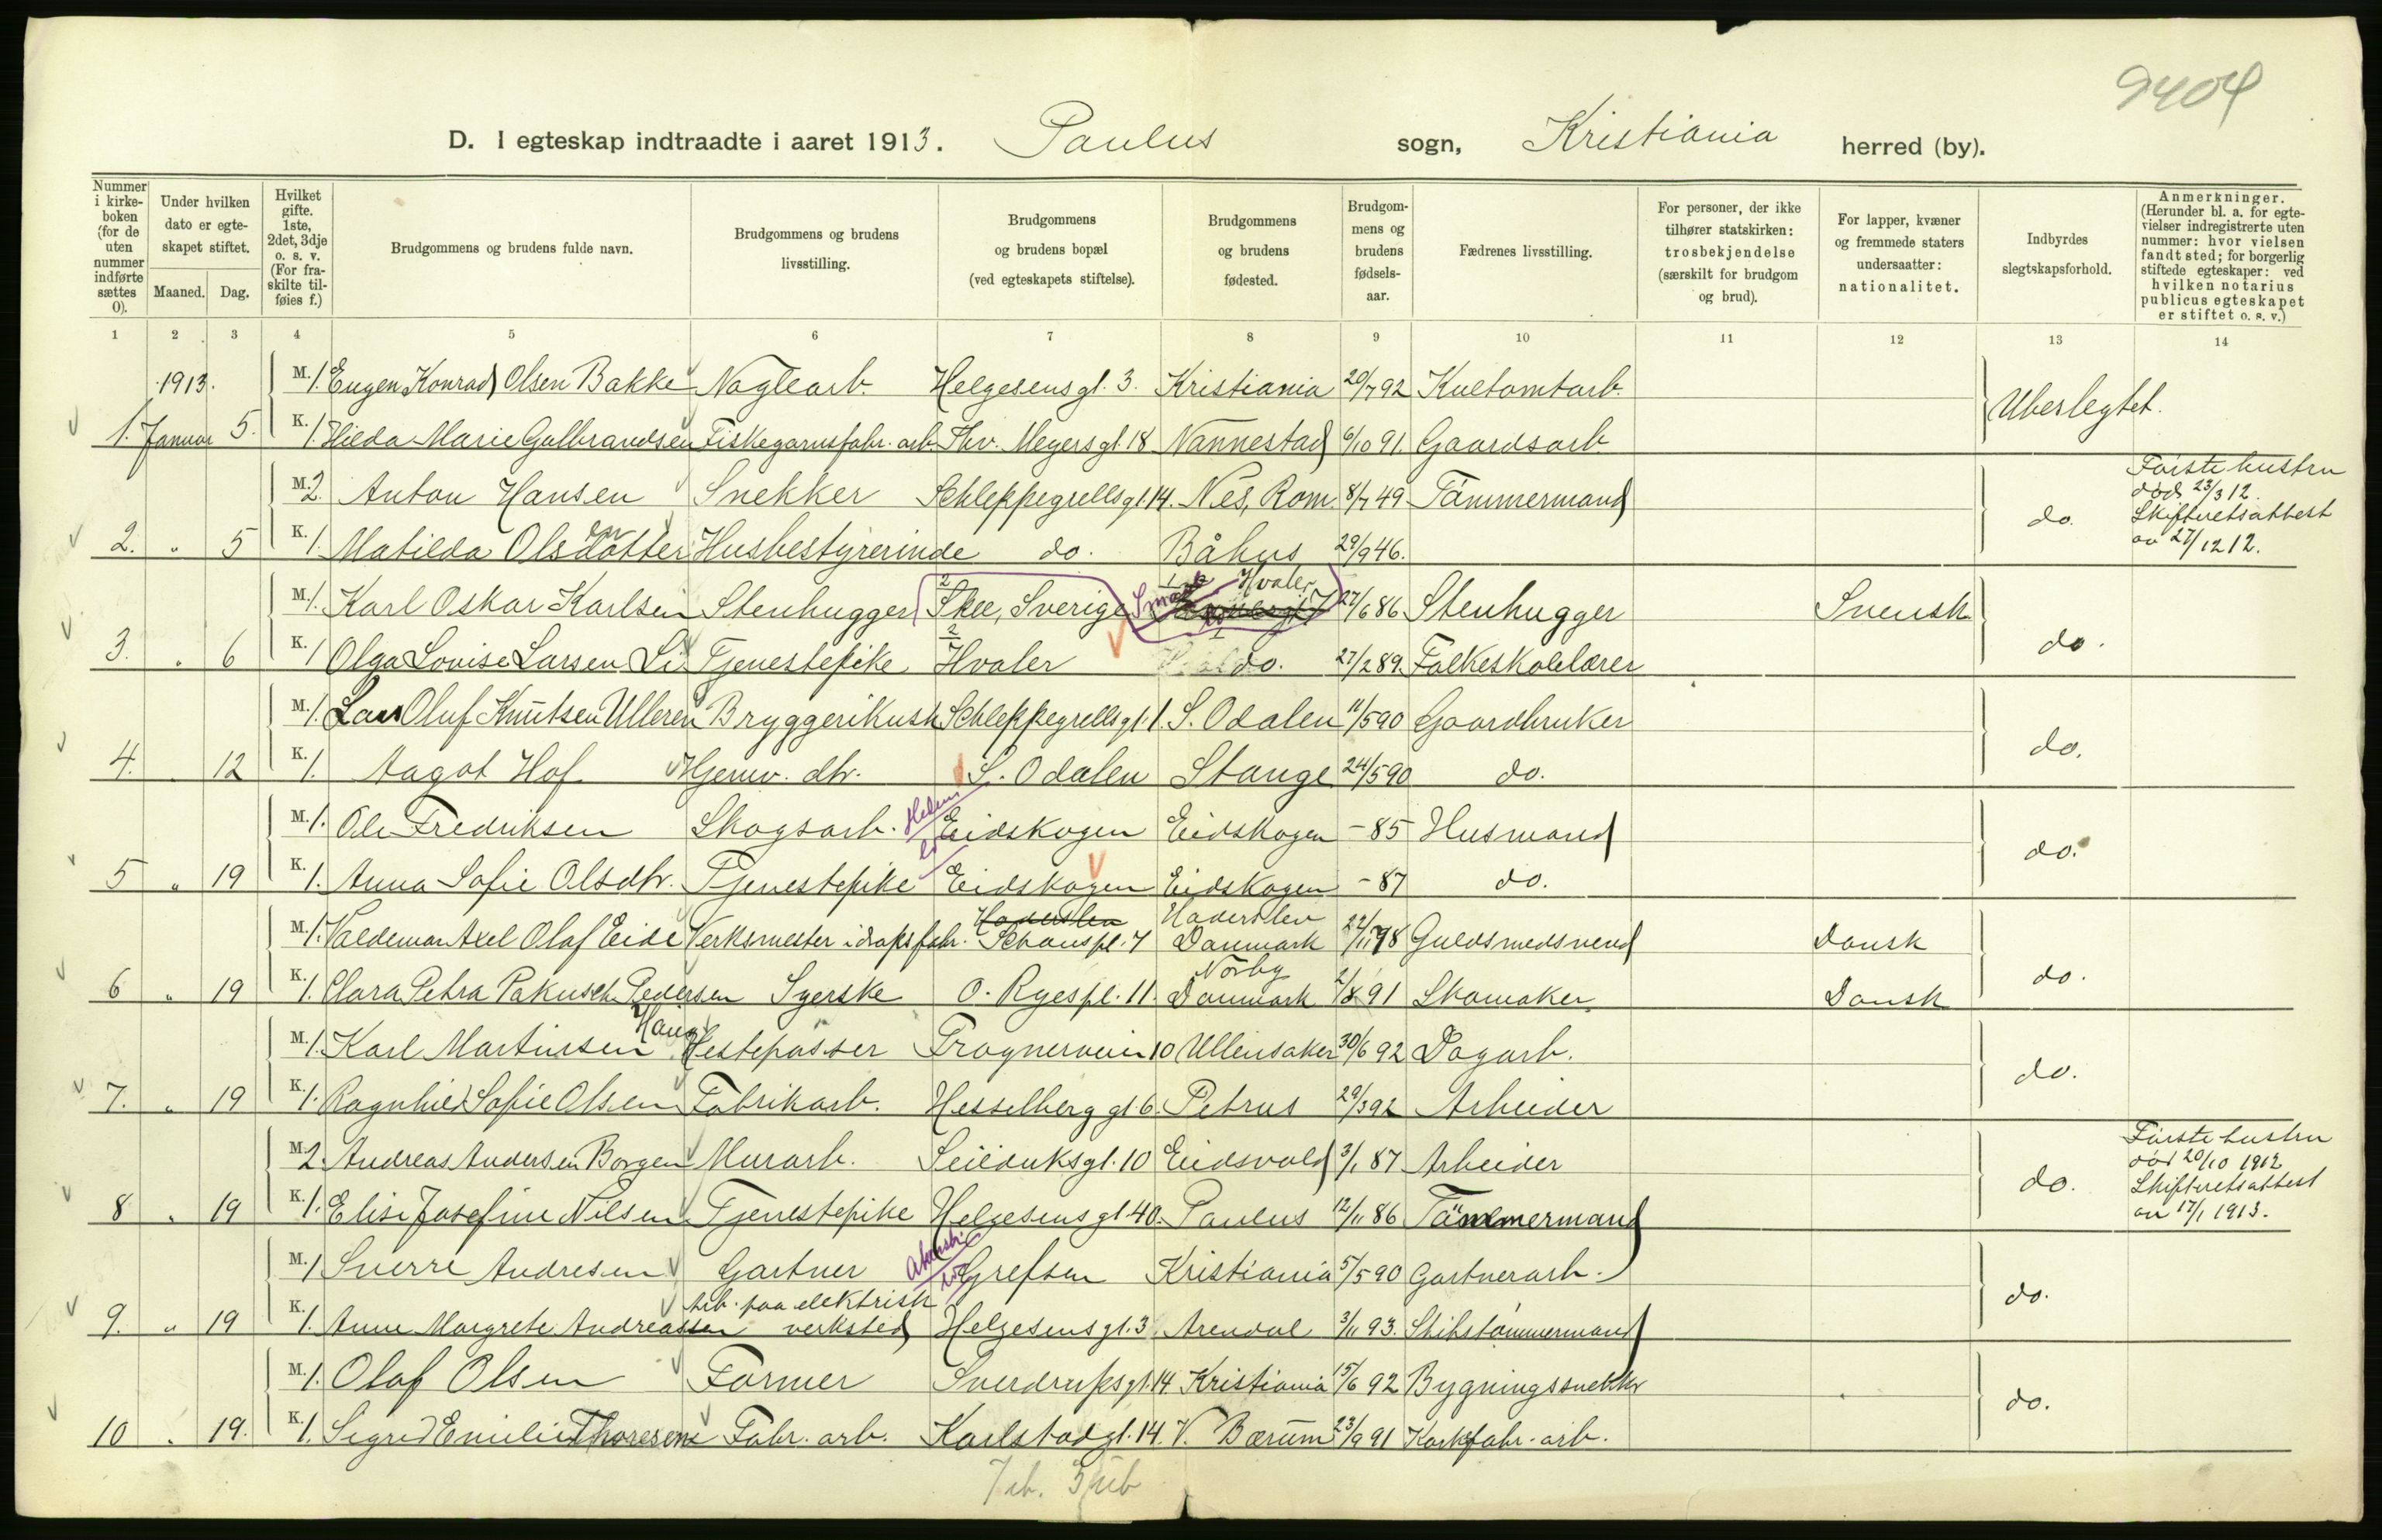 9404
D. I egteskap indtraadte i aaret 1913. Paulus sogn, Kristiania herred (by).
Nummer i kirkeboken (for de uten nummer indførte sættes 0).
Under hvilken dato er egteskapet stiftet.
Maaned. Dag.
Hvilket gifte. 1ste, 2det, 3dje o. s. v. (For fraskilte tilføies f.)
Brudgommens og brudens fulde navn.
Brudgommens og brudens livsstilling.
Brudgommens og brudens bopæl (ved egteskapets stiftelse).
Brudgommens og brudens fødested.
Brudgommens og brudens fødselsaar.
Fædrenes livsstilling.
For personer, der ikke tilhører statskirken: trosbekjendelse (særskilt for brudgom og brud).
For lapper, kvæner og fremmede staters undersaatter: nationalitet.
Indbyrdes slegtskapsforhold.
Anmerkninger. (Herunder bl. a. for egtevielser indregistrerte uten nummer: hvor vielsen fandt sted; for borgerlig stiftede egteskaper: ved hvilken notarius publicus egteskapet er stiftet o. s. v.)
1 2 3 4 5 6 7 8 9 10 11 12 13 14
1913. M. 1. Eugen Konrad Olsen Bakke Naglearb. Helgesensgt. 3. Kristiania 20/7 92 Kultomtarb. Ubeslegtet.
1. Januar 5. K. 1. Hilda Marie Gulbrandsen Fiskegarnsfabr. arb. Thv. Meyersgt. 18 Nannestad 6/10 91. Gaardsarb.
M. 2. Anton Hansen Snekker Schleppegrellsgt. 14. Nes, Rom. 8/7 49 Tømmermand do. Første hustru død 23/3 12. Skifteretsattest av 27/12 12.
2. " 5 K. 1. Matilda Olsdatter Husbestyrerinde do. Båhus 29/9 46.
M. 1. Karl Oskar Karlsen Stenhugger Skee, Sverige Hvaler 27/6 86 Stenhugger Svensk do.
3. " 6 K. 1 Olga Lovise Larsen Li Tjenestepike Hvaler do. 27/2 89. Folkeskolelærer
M. 1. Lars Oluf Knutsen Ulleren Bryggerikusk Schleppegrellsgt. 1. S. Odalen 11/5 90 Gaardbruker do.
4. " 12 K. 1. Aagot Hof Hjemv. dtr. S. Odalen Stange 24/5 90 do.
M. 1. Ole Fredriksen Skogsarb. Eidskogen Eidskogen - 85 Husmand do.
5 " 19 K. 1. Anna Sofie Olsdtr. Tjenestepike Eidskogen Eidskogen - 87 do.
M. 1. Valdemar Axel Olaf Eide Verksmester i dropsfabr. Haderslev Schouspl. 7 Haderslev Danmark 22/11 78 Guldsmedsvend Dansk do.
6 " 19 K. 1. Clara Petra Pakusch Pedersen Syerske O. Ryespl. 11. Nørby Danmark 2/8 91 Skomaker Dansk
M. 1. Karl Martinsen Haug Hestepasser Frognerveien 10 Ullensaker 30/6 92 Dagarb. do.
7. " 19 K. 1. Ragnhild Sofie Olsen Fabrikarb. Hesselberg gt. 6. Petrus 29/3 92 Arbeider
M. 2. Andreas Andersen Borgen Murarb. Seilduksgt. 10 Eidsvold 3/1 87 Arbeider do. Første hustru død 20/10 1912 Skifteretsattest av 17/1 1913.
8 " 19 K. 1. Elise Josefine Nilsen Tjenestepike Helgesensgt 40. Paulus 12/11 86 Tømmermand
M. 1 Sverre Andresen Gartner Grefsen Kristiania 5/5 90 Gartnerarb. do.
9. " 19 K. 1. Anne Margrete Andreassen Arb. paa elektrisk verksted Helgesensgt. 3. Arendal 3/11 93. Skibstømmermand
M. 1. Olaf Olsen Former Sverdrupsgt. 14 Kristiania 15/6 92 Bygningssnekker do.
10 " 19. K. 1. Sigrid Emilie Thoresen Fabr. arb. Karlstadgt. 14. V. Bærum 23/9 91 Korkfabr. arb.